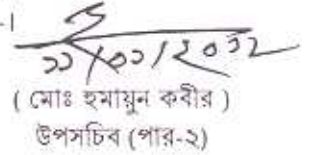 ১১/০১/২০১২
( মোঃ হুমায়ুন কবীর )
উপসচিব (পার-২)